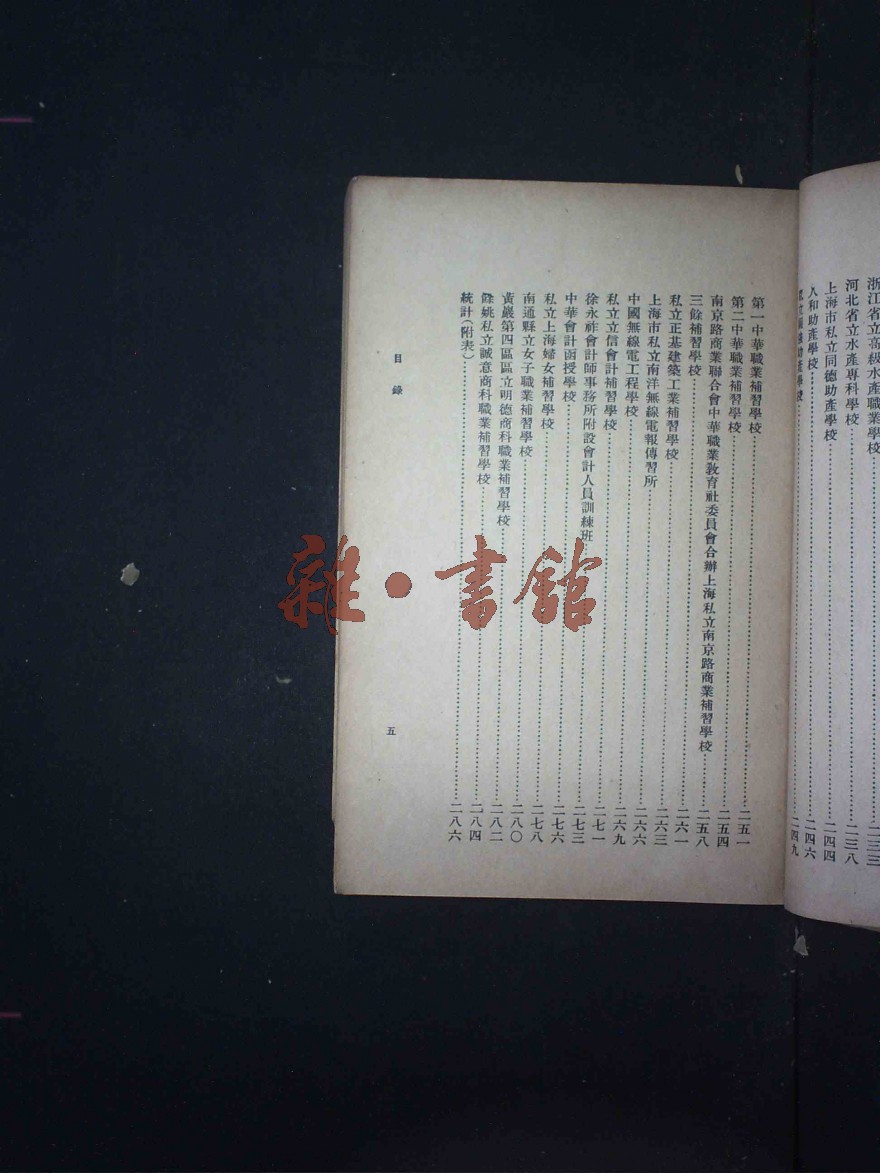 浙江省立高級水產職業學校……二三三
河北省立水產專科學校……二三八
上海市私立同德助產學校……二四四
人和助產學校……二四六
助產學校……二四九
第一中華職業補習學校……二五一
第二中華職業補習學校……二五四
南京路商業聯合會中華職業教育社委員會合辦上海私立南京路商業補習學校……二五八
三餘補習學校……二六一
私立正基建築工業補習學校……二六三
上海市私立南洋無線電報傳習所……二六六
中國無線電工程學校……二六九
私立立信會計補習學校……二七一
徐永祚會計師事務所附設會計人員訓練班……二七三
中華會計函授學校……二七六
私立上海婦女補習學校……二七八
南通縣立女子職業補習學校……二八〇
黃巖第四區區立明德商科職業補習學校……二八二
餘姚私立誠意商科職業補習學校……二八四
統計(附表)……二八六
目錄
五
雜·書館